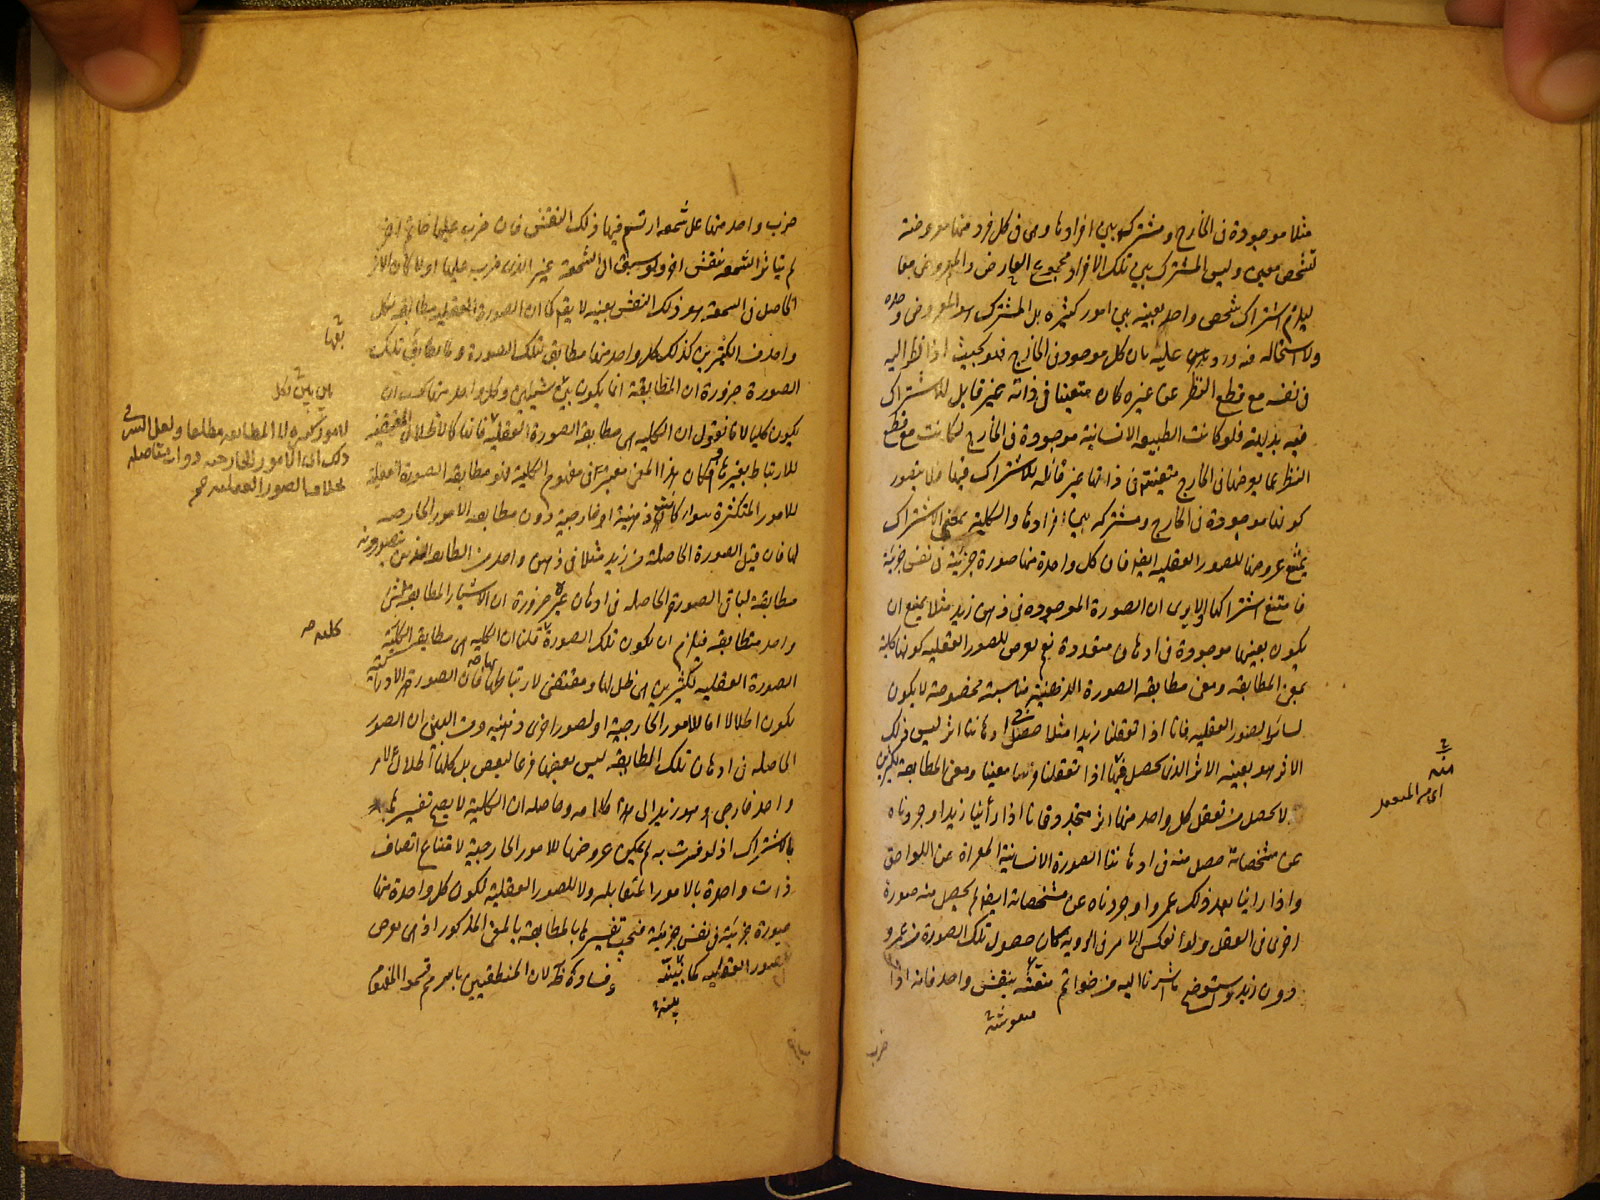 مثلا موجودة فى الخارج ومشتركة بين افرادها وهى فى كل فرد منها معروضة
لتشخص معين وليس المشترك بين تلك الافراد مجموع العارض والمعروض معا
ليلزم اشتراك شخص واحد بعينه بين امور كثيرة بل المشترك هو المعروض وحده
ولا استحالة فيه ورد عليه بان كل موجود فى الخارج فهو بحيث اذا نظر اليه
فى نفسه مع قطع النظر عن غيره كان متعينا فى ذاته غير قابل للاشتراك
فيه بديهة فلو كانت الطبيعة الانسانية موجودة فى الخارج لكانت مع قطع
النظر عما يعرضها فى الخارج متعينة فى ذاتها غير قابلة للاشتراك فيها فلا يتصور
كونها موجودة فى الخارج ومشتركة بين افرادها والكلية بمعنى الاشتراك
يمتنع عروضها للصور العقلية ايضا فان كل واحدة منها صورة جزئية فى نفس جزئية
فامتنع اشتراكها الا يرى ان الصورة الموجودة فى ذهن زيد مثلا يمتنع ان
يكون بعينها موجودة فى اذهان متعددة نعم يعرض للصور العقلية كونها كلية
بمعنى المطابقة ومعنى مطابقة الصورة الذهنية مناسبة مخصوصة لا يكون
لسائر الصور العقلية فانا اذا تعقلنا زيدا مثلا حصل فى اذهاننا اثر ليس ذلك
الاثر هو بعينه الاثر الذى يحصل فيها اذا تعقلنا فرسا معينا ومعنى المطابقة لكثيرين
لا يحصل من تعقل كل واحد منها اثر متجدد فانا اذا رأينا زيدا وجردناه
عن مشخصاته حصل منه فى اذهاننا الصورة الانسانية المعراة عن اللواحق
واذا رأينا بعد ذلك عمروا وجردناه عن مشخصاته ايضا لم يحصل منه صورة
اخرى فى العقل ولو انعكس الامر فى الروية كان حصول تلك الصورة من عمرو
دون زيد واستوضح ما اشرنا اليه من خواتم منقشة بنقش واحد فانه اذا
منقوشة
ضرب
منه
ضرب واحد منها على شمعة ارتسم فيها ذلك النقش فان ضرب عليها خاتم اخر
لم يتأثر الشمعة بنقش اخر ولو سبق الى الشمعة غير الذى ضرب عليها اولا لكان الاثر
الحاصل فى الشمعة هو ذلك النقش بعينه لا يقم كما ان الصورة العقلية مطابقة لكل
واحد من الكثيرين كذلك كل واحد منها مطابق لتلك الصورة ولما يطابق تلك
الصورة ضرورة ان المطابقة انما يكون بين شيئين وكل واحد منها يجب ان
يكون كليا لانا نقول ان الكلية هى مطابقة الصورة العقلية فانها كالاظلال المقتضية
للارتباط بغيرها وكان هذا المعنى معتبر فى مفهوم الكلية فهو مطابقة الصورة العقلية
للامور المتكثرة سواء كانت ذهنية او خارجية دون مطابقة الامور الخارجية
لها فان قيل الصورة الحاصلة من زيد مثلا فى ذهن واحد من الطائفة الذين تصوروه
مطابقة لباقى الصورة الحاصلة فى اذهان غيره ضرورة ان الاشياء المطابقة لشئ
واحد متطابقة فيلزم ان يكون تلك الصورة كلية قلنا ان الكلية هى مطابقة
الصورة العقلية لكثيرين هى ظل لها ومقتضى لارتباطها بها فان الصورة الادراكية
يكون اظلالا اما للامور الخارجية او لصور اخرى ذهنية ومن البين ان الصور
الحاصلة فى اذهان تلك الطائفة ليس بعضها فرعا لبعض بل كلها اظلال لامر
واحد خارجى وهو زيد الى هنا كلامه وحاصله ان الكلية لا يصح تفسيرها
بالاشتراك اذ لو فسرت به لم يمكن عروضها للامور الخارجية لامتناع اتصاف
ذات واحدة بالامور المتقابلة ولا للصور العقلية لكون كل واحدة منها
صورة جزئية فى نفس جزئية فيجب تفسيرها بالمطابقة بالمعنى المذكور اذ هى يعرض
لصور العقلية كما بينه وفساده ظ لان المنطقيين باسرهم قسموا المفهوم
بينه
بين بين كل
لامور كثيرة لا المطابقة مطلقا ولعل السر فى
ذلك ان الامور الخارجية ذوات متاصلة
بخلاف الصور العقلية صح
كلية صح